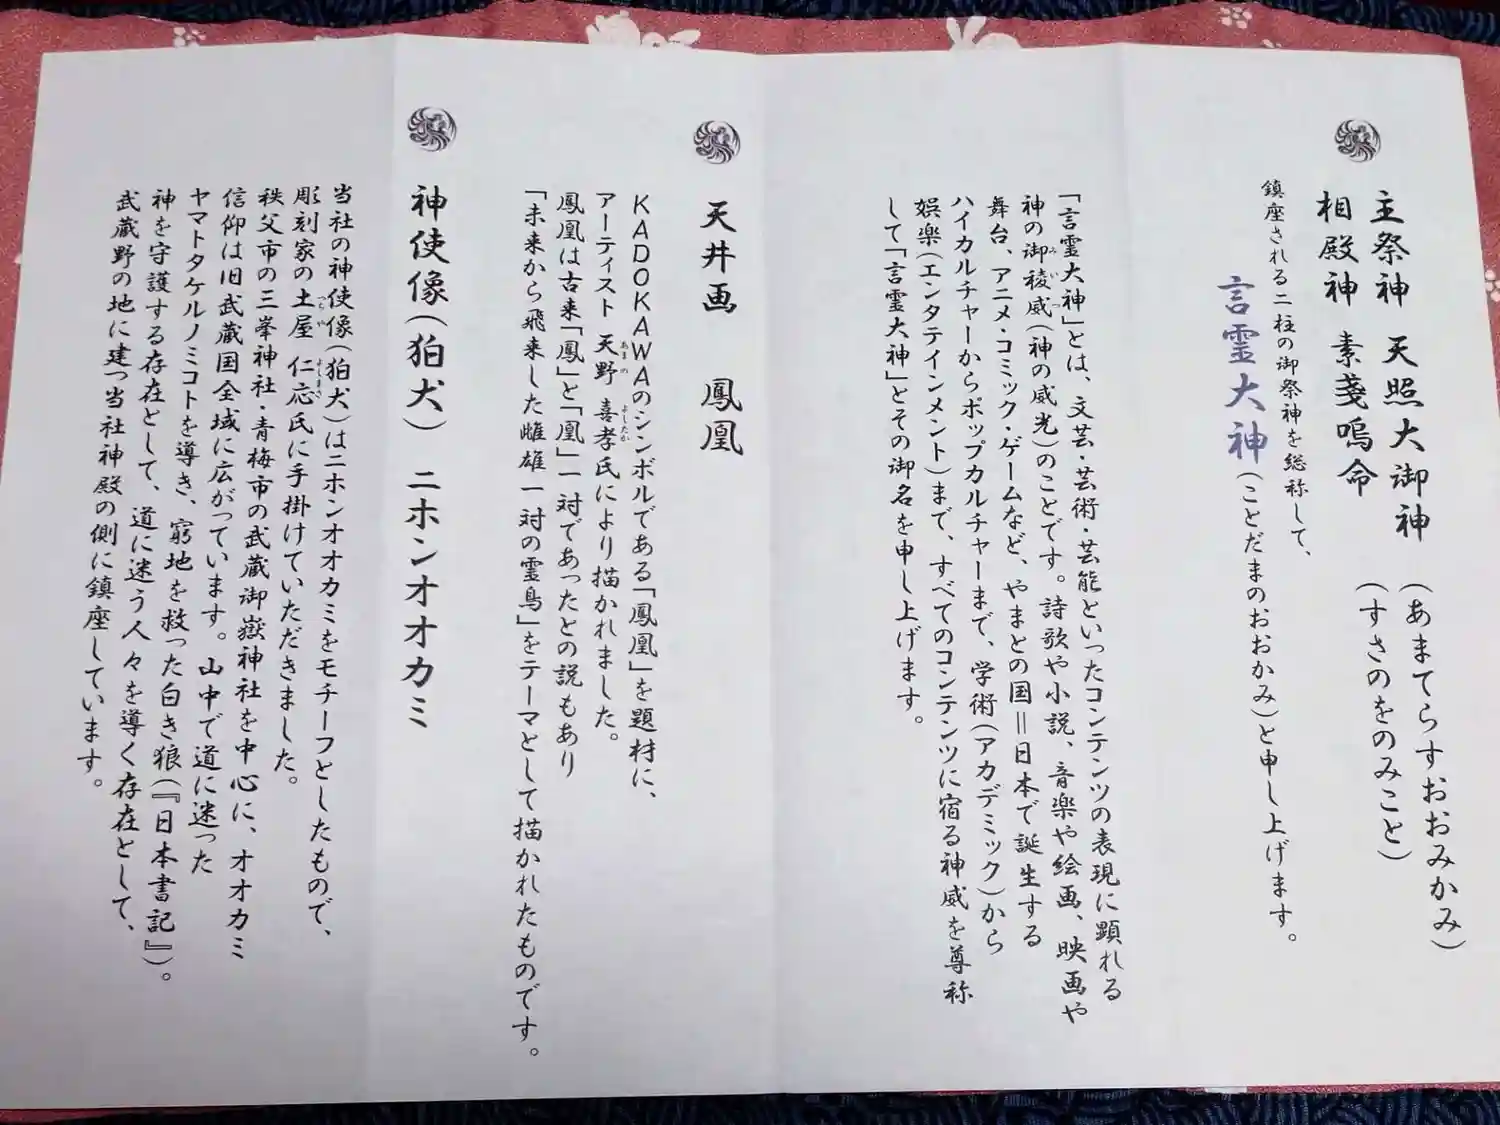 主祭神 天照大御神 (あまてらすおおみかみ)
相殿神 素戔嗚命 (すさのをのみこと)
鎮座される二柱の御祭神を総称して、
言霊大神(ことだまのおおかみ)と申し上げます。
「言霊大神」とは、文芸・芸術・芸能といったコンテンツの表現に顕れる
神の御稜威(神の威光)のことです。詩歌や小説、音楽や絵画、映画や
舞台、アニメ・コミック・ゲームなど、やまとの国=日本で誕生する
ハイカルチャーからポップカルチャーまで、学術(アカデミック)から
娯楽(エンタテインメント)まで、すべてのコンテンツに宿る神威を尊称
して「言霊大神」とその御名を申し上げます。
天井画 鳳凰
KADOKAWAのシンボルである「鳳凰」を題材に、
アーティスト 天野 喜孝氏により描かれました。
鳳凰は古来「鳳」と「凰」一対であったとの説もあり
「未来から飛来した雌雄一対の霊鳥」をテーマとして描かれたものです。
神使像(狛犬) ニホンオオカミ
当社の神使像(狛犬)はニホンオオカミをモチーフとしたもので、
彫刻家の土屋 仁応氏に手掛けていただきました。
秩父市の三峯神社・青梅市の武蔵御嶽神社を中心に、オオカミ
信仰は旧武蔵国全域に広がっています。山中で道に迷った
ヤマトタケルノミコトを導き、窮地を救った白き狼(『日本書記』)。
神を守護する存在として、道に迷う人々を導く存在として、
武蔵野の地に建つ当社神殿の側に鎮座しています。